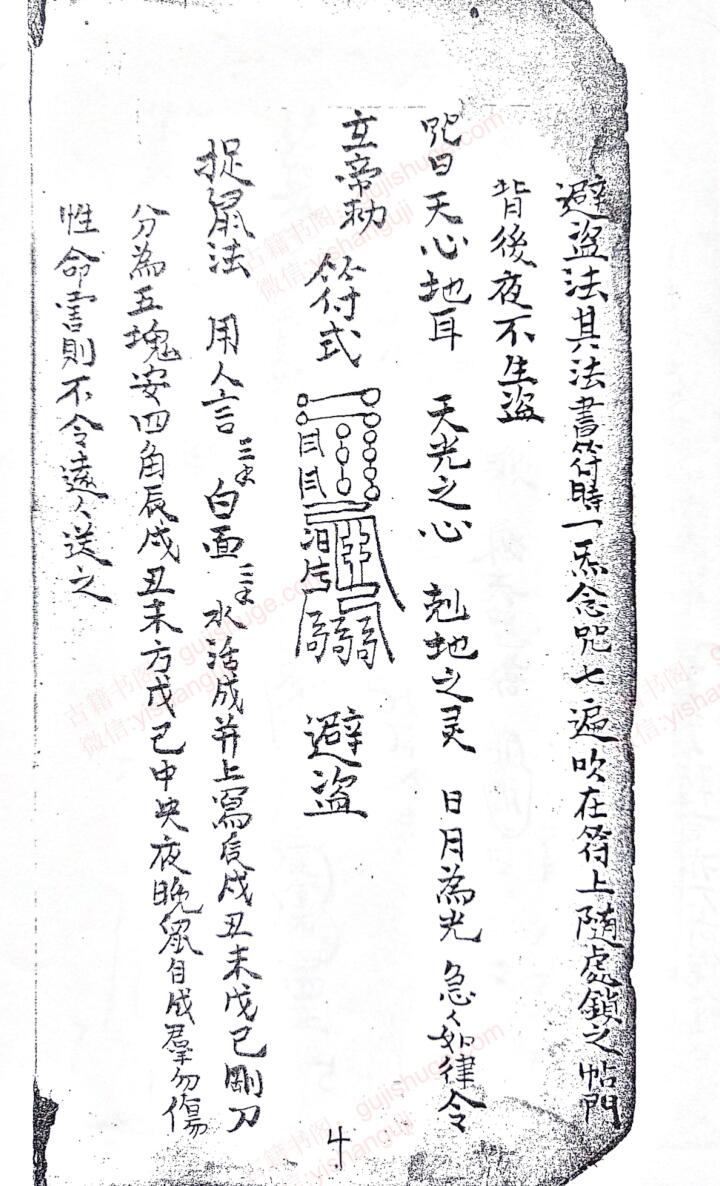 避盜法其法書符時一炁念咒七遍吹在符上隨處鎖之帖門
背後夜不生盜
咒曰天心地耳 天光之心 剋地之灵 日月為光 急々如律令
玄帝勅 符式
避盜
捉鼠法 用人言三錢 白面三錢 水活成并上寫辰戌丑未戊己剛刀
分為五塊安四角辰戌丑未方戊己中央夜晚鼠自成羣勿傷
性命害則不令遠人送之
4
古籍书阁:gujishuge.com
微信:yishanguji